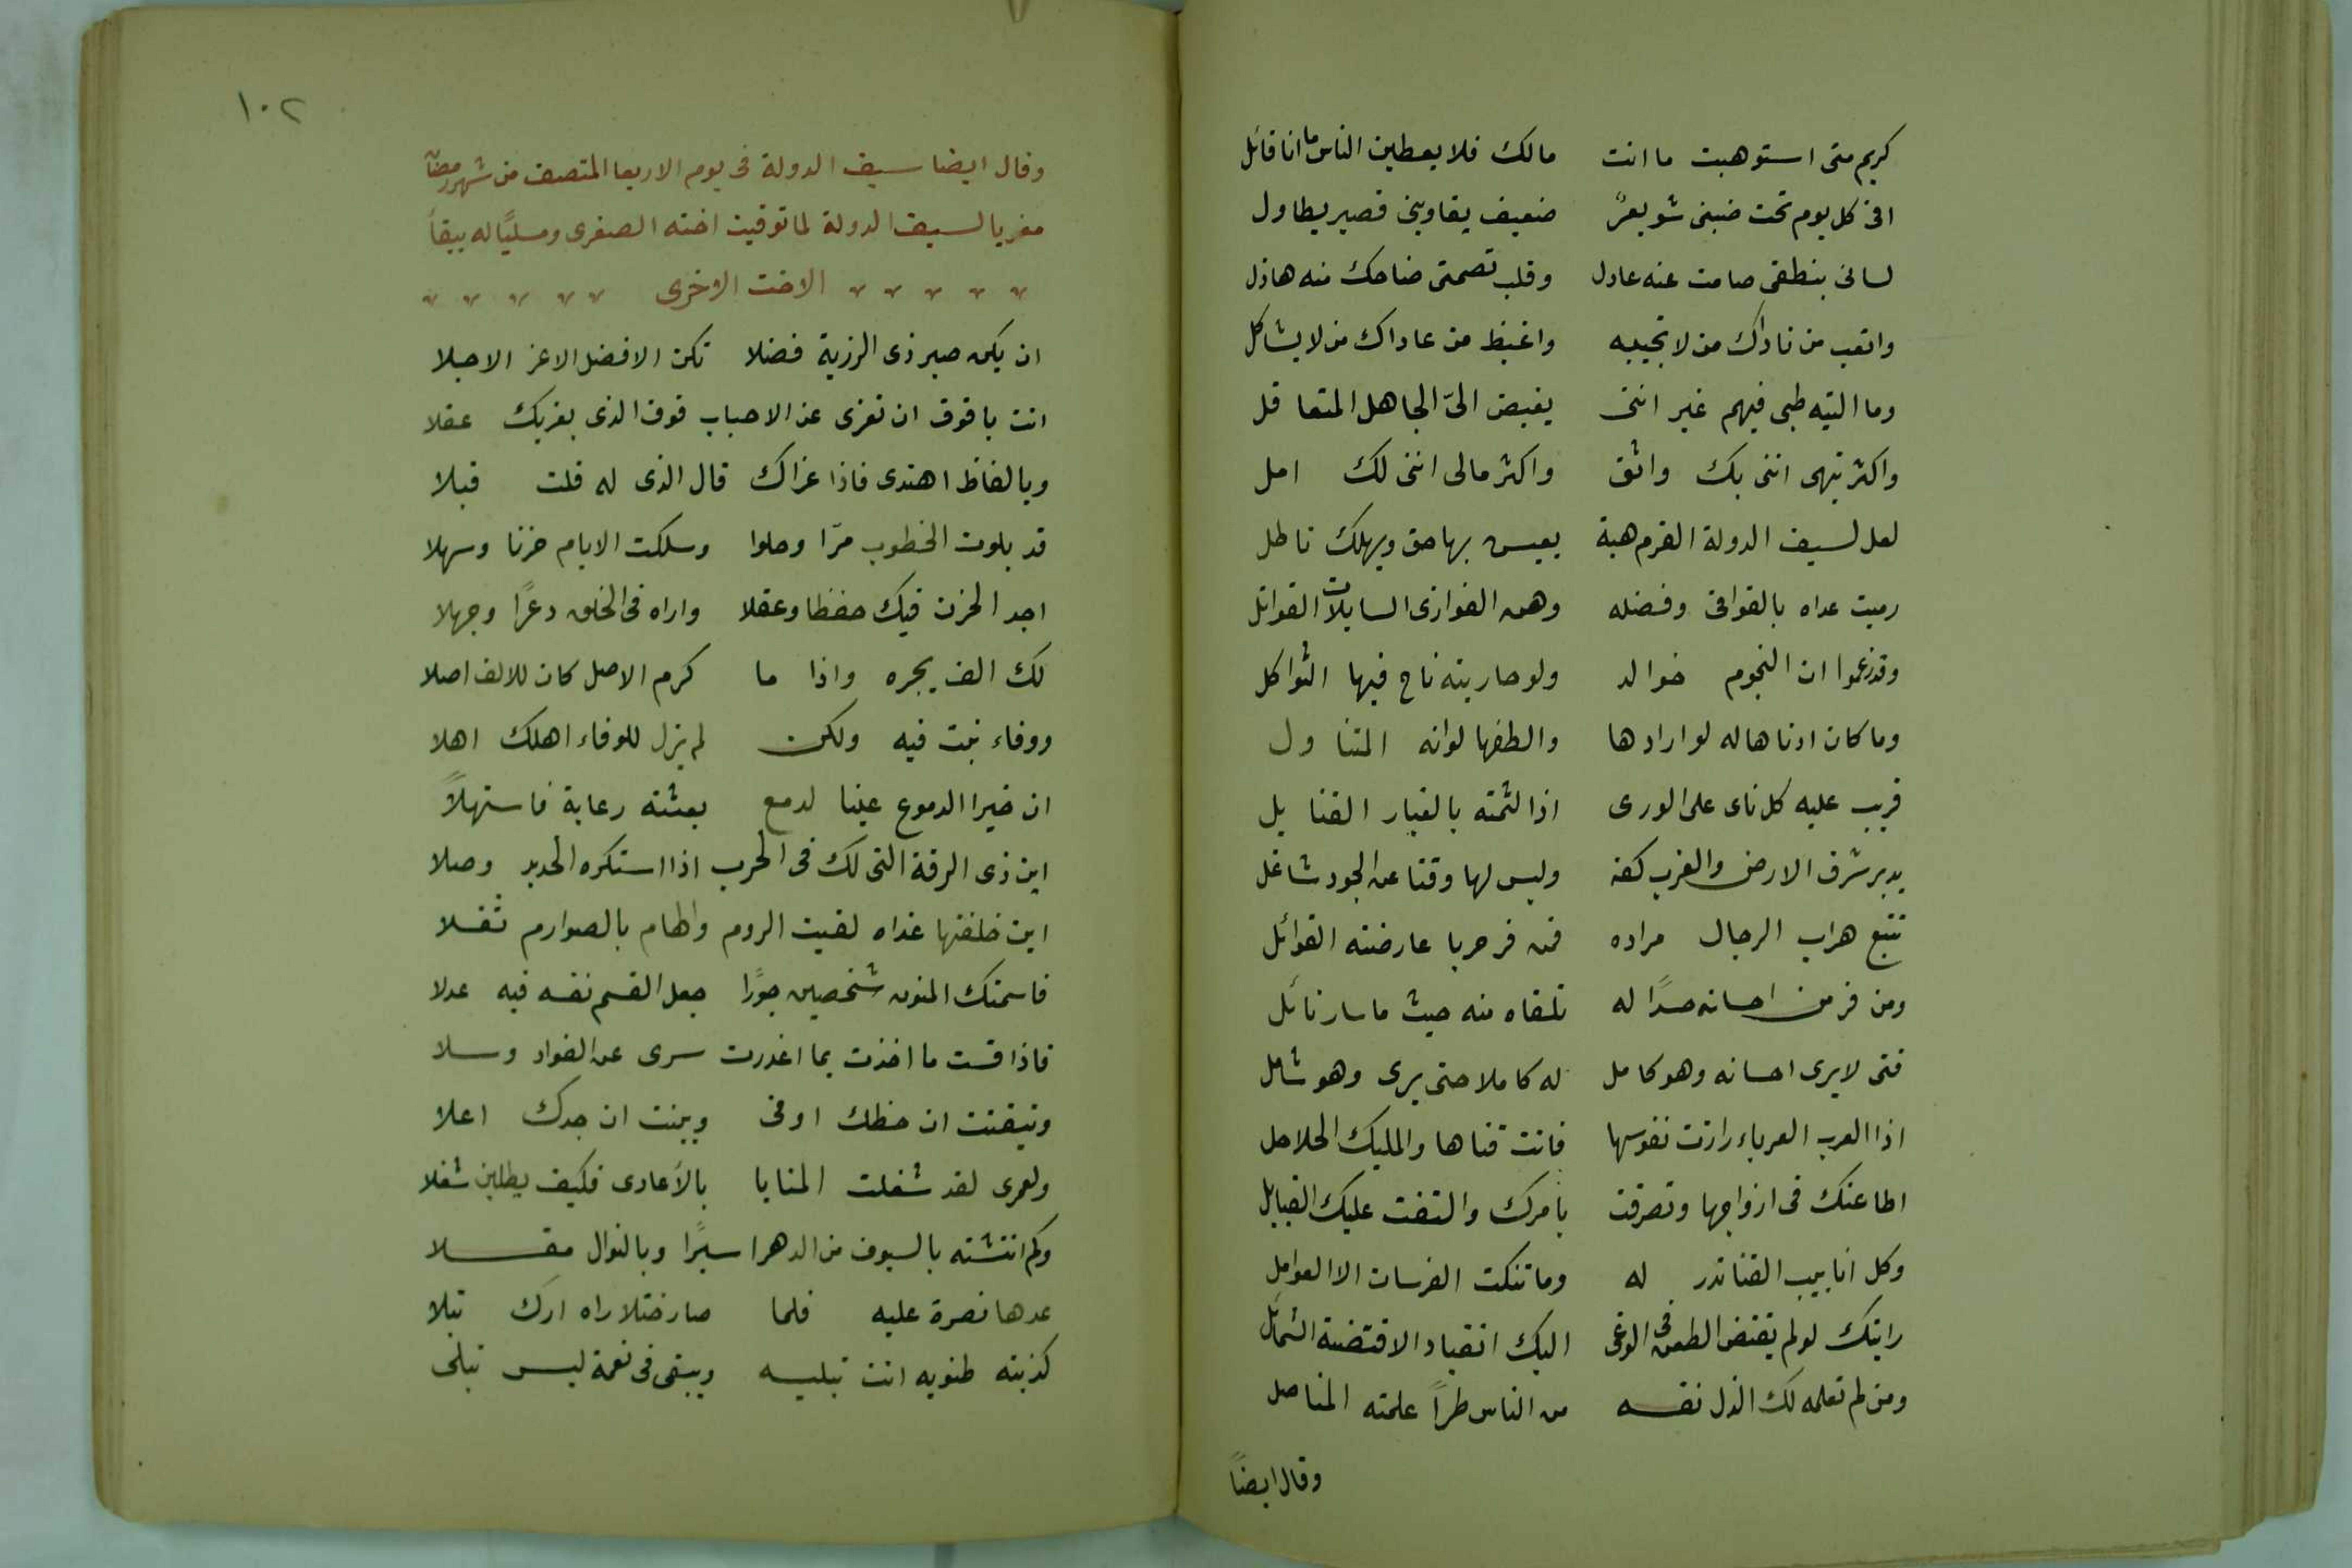 كريم متى استوهبت ما انت مالك فلا يعطين الناس ما انا قائل
افى كل يوم تحت ضبنى شويعرً ضعيف يقاوينى قصير يطاول
لسانى بنطقى صامت عنه عادل وقلب تصمتى ضاحك منه هاذل
واتعب من ناداك من لا تجيبه واغيظ من عاداك من لا يشاكل
وما التيه طبى فيهم غير اننى يغيض الىّ الجاهل المتعاقل
واكثر تيهى اننى بك واثق واكثر مالى اننى لك امل
لعل لسيف الدولة القرم هبة يعيس بها حق ويهلك ناطل
رميت عداه بالقوافى وفضله وهن الغوازى السايلات القواتل
وقد زعموا ان النجوم خوالد ولو حاربته ناح فيها الثواكل
وما كان ادناها له لو ارادها والطفها لوانه المتناول
قريب عليه كل ناى على الورى اذا لثمته بالغبار القنابل
يدبر شرق الارض والغرب كفه وليس لها وقتا عن الجود شاغل
تتبع هراب الرجال مراده فمن فر حربا عارضته الغوائل
ومن فر من احسانه حسدًا له تلقاه منه حيث ما سار نائل
فتى لا يرى احسانه وهو كامل له كاملا حتى يرى وهو شامل
اذا العرب العرباء رازت نفوسها فانت فتاها والمليك الحلاحل
اطاعتك فى ارواحها وتصرفت بامرك والتفت عليك القبايل
وكل انابيب القنا تدر له وما تنكت الفرسان الا العوامل
رايتك لو لم يقتض الطعن فى الوغى اليك انقياد الاقتضته الشمائل
ومن لم تعلمه لك الذل نفسه من الناس طراً علمته المناصل
وقال ايضاً
١٠٢
وقال ايضا سيف الدولة فى يوم الاربعا المتصف من شهر رمضان
معزيا لسيف الدولة لما توفيت اخته الصغرى ومسليًا له ببقاً
الاخت الاخرى
ان يكن صبر ذى الرزية فضلا تكن الافضل الاعز الاجلا
انت يا فوق ان تعزى عن الاحباب فوق الذى يعزيك عقلا
وبالفاظ اهتدى فاذا عزاك قال الذى له قلت قبلا
قد بلوت الخطوب مرّا وحلوا وسلكت الايام حزنا وسهلا
اجد الحزن فيك حفظا وعقلا واراه فى الخلق دعرًا وجهلا
لك الف يجره واذا ما كرم الاصل كان للالف اصلا
ووفاء نبت فيه ولكن لم يزل للوفاء اهلك اهلا
ان خيرا الدموع عينا لدمع بعثته رعاية فاستهلاً
اين ذى الرقة التى لك فى الحرب اذا استكره الحديد وصلا
اين خلفتها غداه لقيت الروم والهام بالصوارم تفلا
قاسمتك المنون شخصين جورًا جعل القسم نفسه فيه عدلا
فاذا قست ما اخذت بما اغدرت سرى عن الفواد وسلا
وتيقنت ان حظك اوفى وبينت ان جدك اعلا
ولعمرى لقد شغلت المنايا بالأعادى فكيف يطلبن شغلا
وكم انتشته بالسيوف من الدهر اسيرًا وبالنوال مقلا
عدها نصرة عليه فلما صار ختلا راه ادرك تبلا
كذبته ظنونه انت تبليه ويبقى فى نعمة ليس تبلى